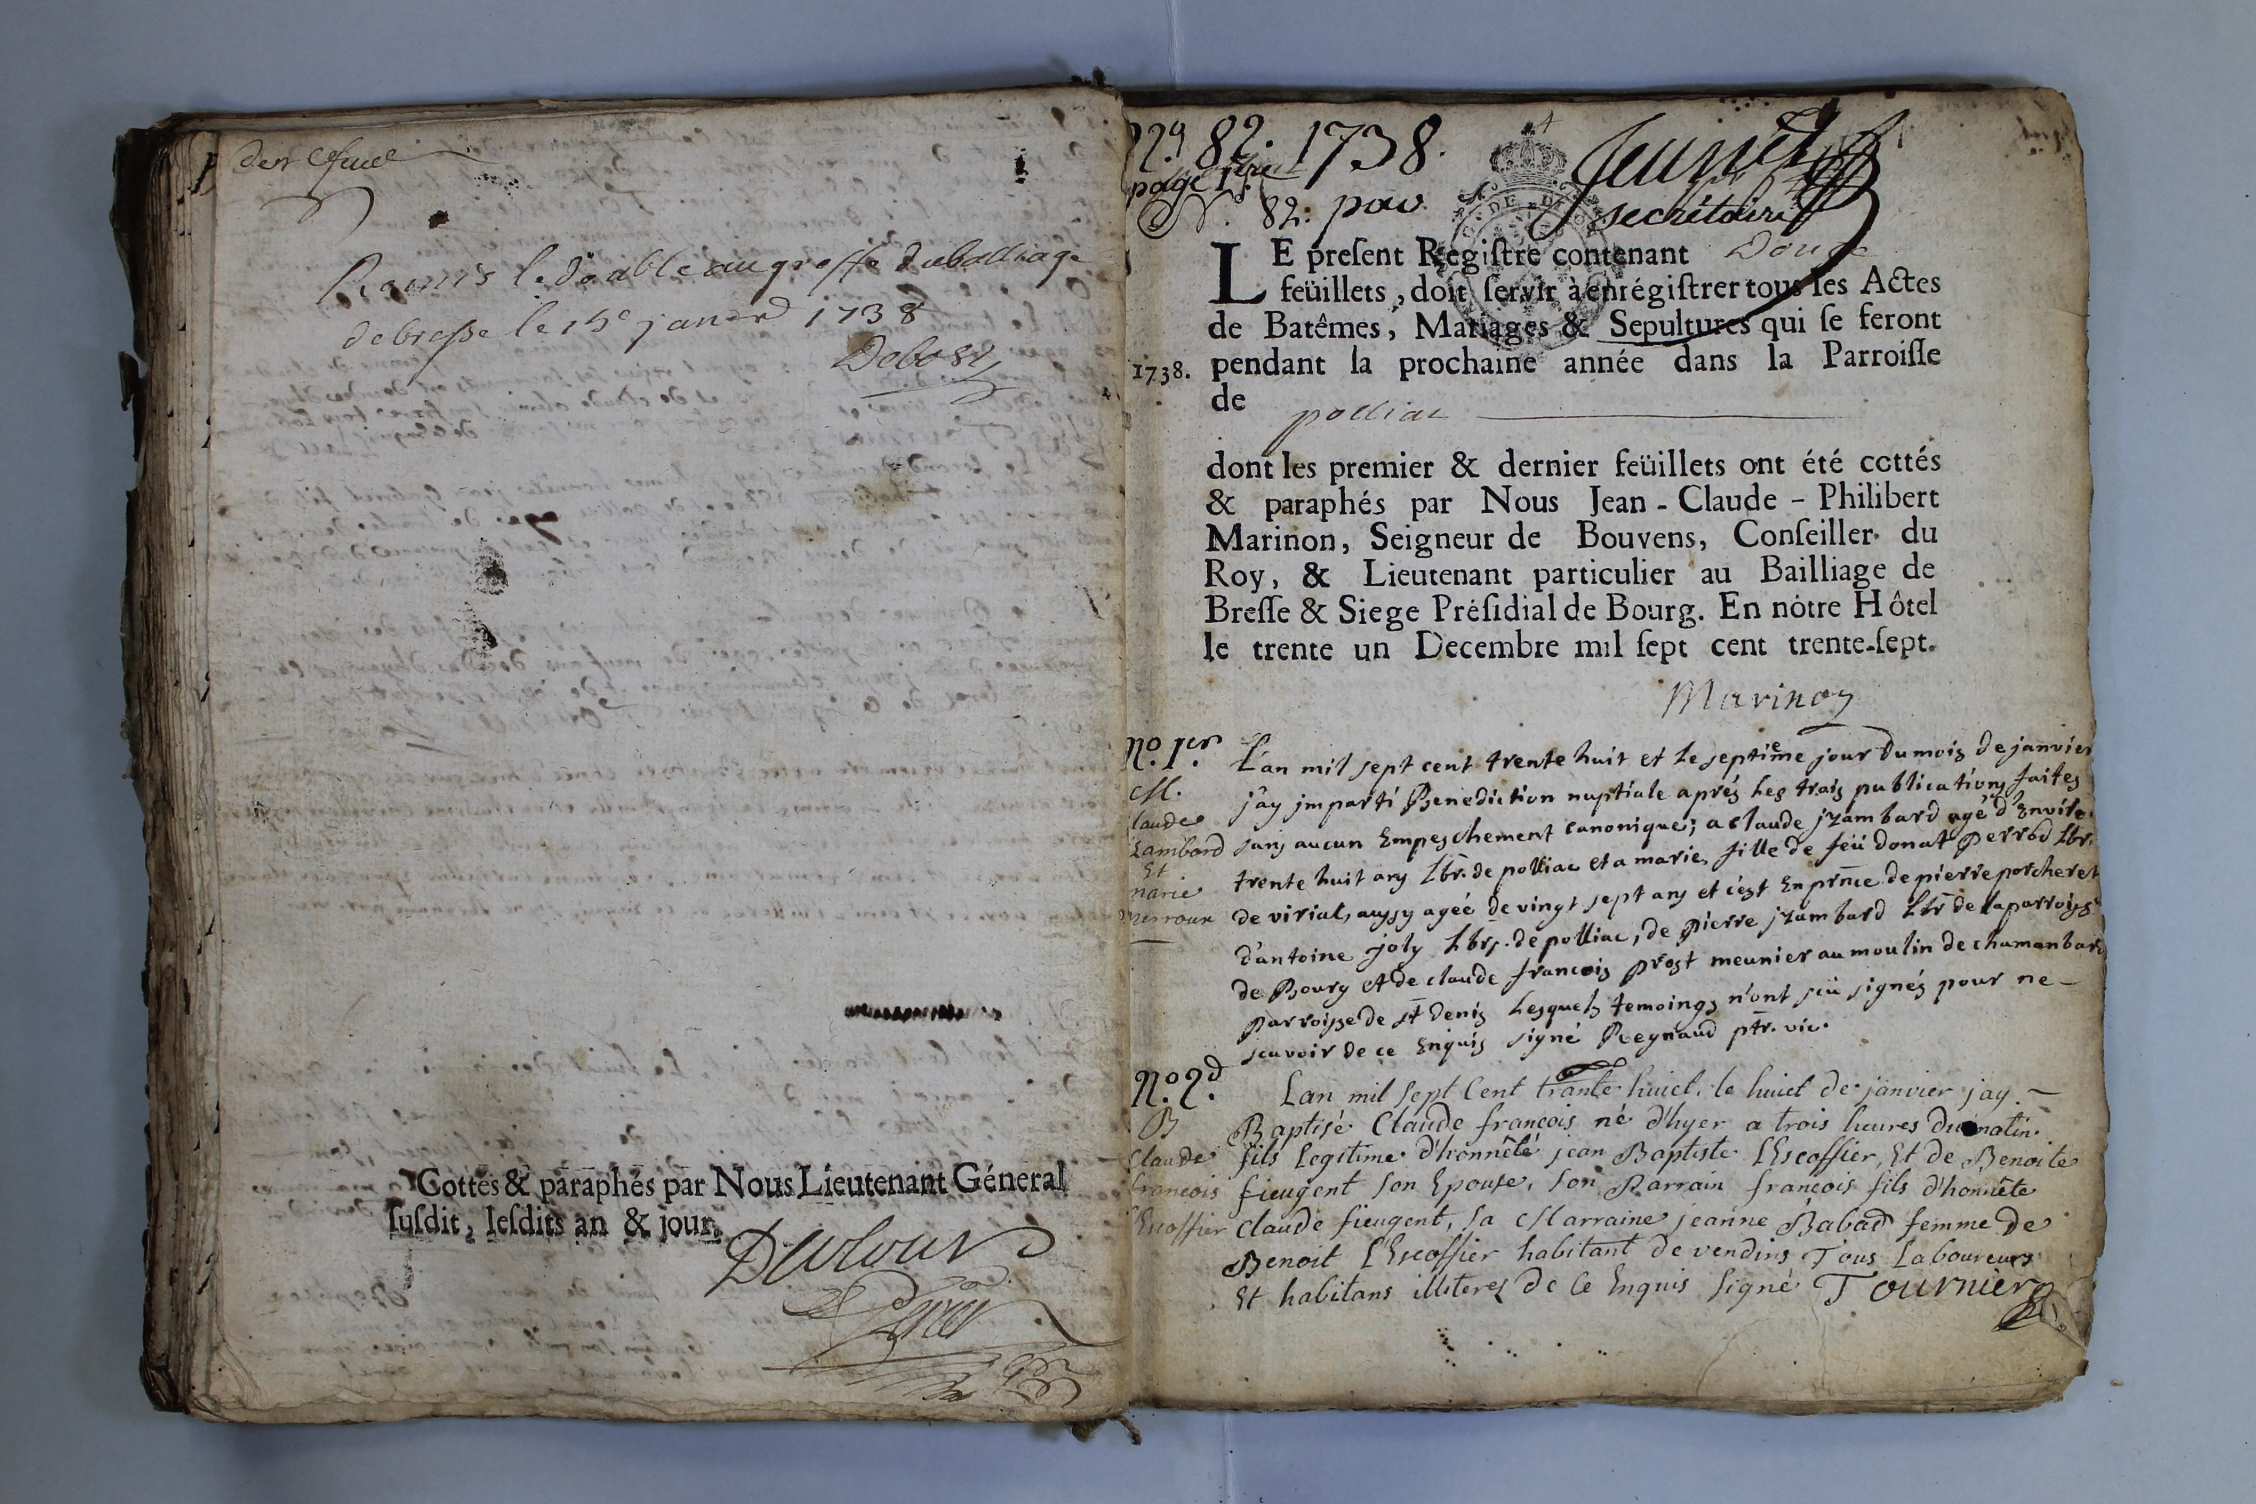 Remis le double au greffe du balliage
de bresse le 15e janvr 1738
Cottés & paraphés par Nous Lieutenant Géneral
susdit, lesdits an & jour.
82. 1738.
page 1ere
82: pav
secrétaire
LE present Registre contenant Douze
feüillets, doit servir à enrégistrer tous les Actes
de Batêmes, Mariages & Sepultures qui se feront
1738. pendant la prochaine année dans la Parroisse
de polliac
dont les premier & dernier feüillets ont été cottés
& paraphés par Nous Jean-Claude-Philibert
Marinon, Seigneur de Bouvens, Conseiller du
Roy, & Lieutenant particulier au Bailliage de
Bresse & Siege Présidial de Bourg. En nôtre Hôtel
le trente un Decembre mil sept cent trente-sept.
Marinon
No. 1er
M.
Claude
Et
marie
L'an mil sept cent trente huit et le septième jour du mois de janvier
j'ay jmparti Benediction nuptiale aprés les trois publications faites
sans aucun Empeschement canonique; a claude jzambard agé d'Enviro.
trente huit ans Lbr. de polliac et a marie, fille de feü donat Perrod Lbr.
de virial, aussy agéé de vingt sept ans et c'est En prnce de pierre porcheret
d'antoine joly Lbrs. de polliac, de pierre jzambard Lbr de la parroisse
de Bourg et de claude francois Prost meunier au moulin de chamanbard
Parroisse de st denis Lesquels temoings n'ont sçu signés pour ne
scavoir de ce Enquis signé Reynaud ptr. vic.
No. 2d.
B
Claude
francois
L'Escoffier
Lan mil sept Cent trante huict, le huict de janvier jay
Baptisé Claude françois né d'hyer a trois heures du matin
fils Legitime d'honnête jean Baptiste L'Escoffier, Et de Benoite
fieugent son Epouse, son Parrain françois fils d'honnête
Claude fieugent, sa Marraine jeanne Babad femme de
Benoit L'Escoffier habitant de vendins Tous Laboureurs
Et habitans illiterez de Ce Enquis Signé Tournier